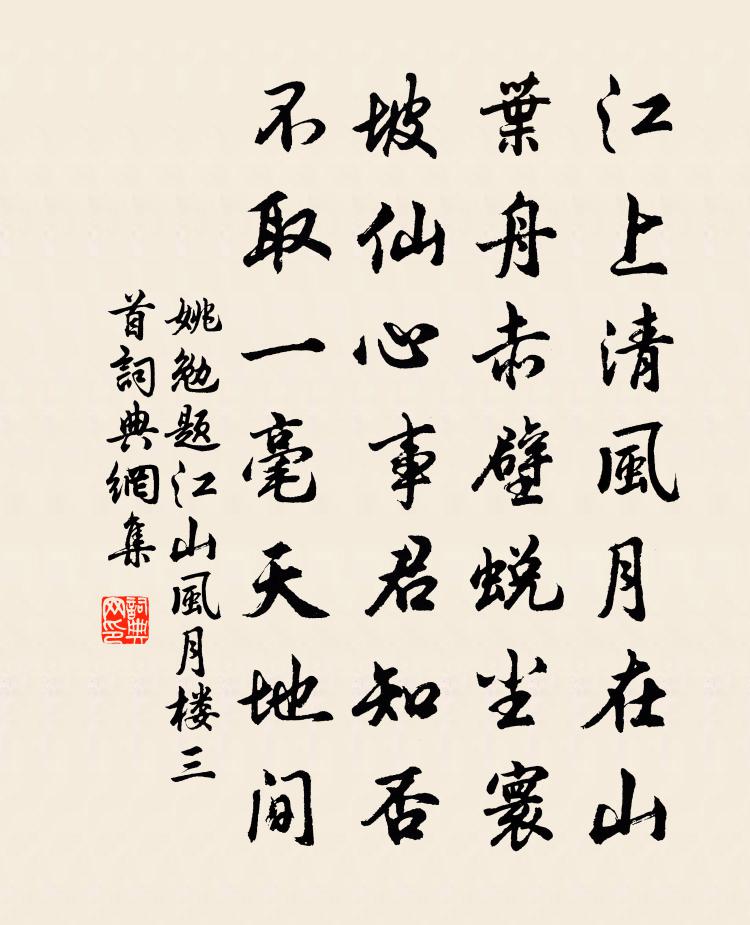 江上清風月在山
葉舟赤壁蜕尘寰
坡仙心事君知否
不取一毫天地间
姚勉题江山風月楼三
首詞典網集
詞典网印